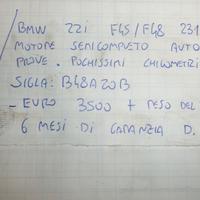 BMW 22i F45/F48 231
MOTORE SEMICOMPLETO AUTO
PROVE. POCHISSINI CHILOMETRI
SIGLA: B48A20B
- EURO 3500 + PESO DEL
6 MESI DI GARANZIA D.